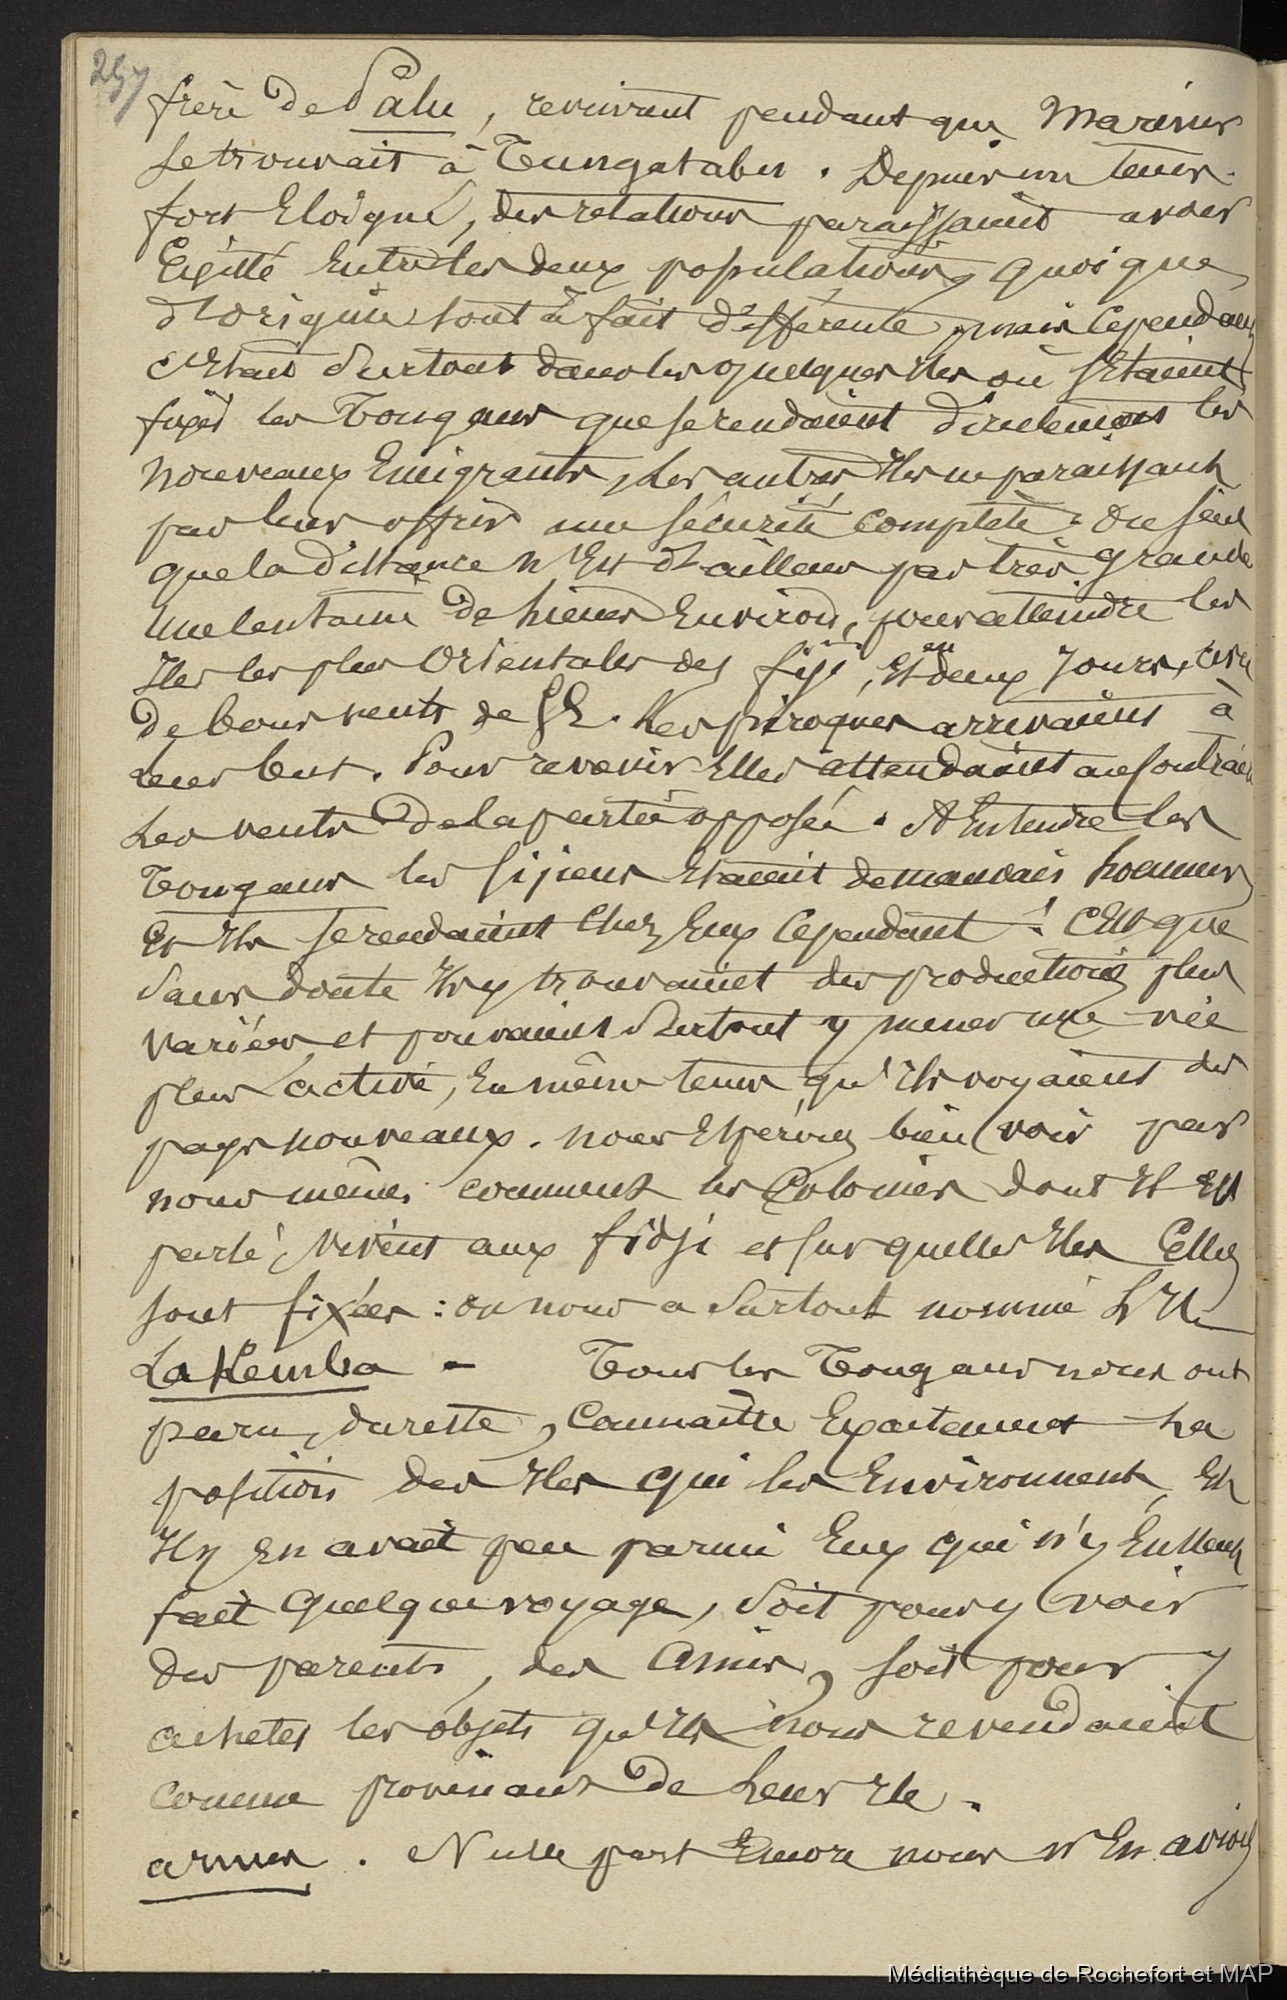 257
frère de Palu, revinrent pendant que Mariner
se trouvait à Tungatabu. Depuis un tems
fort Eloigné, des relations paraissaient avoir
Existé Entre les deux populations, quoique
d'origine tout à fait différente, mais cependant
c'Etait surtout dans les quelques Iles où s'Etaient
fixés les Tongans que se rendaient d'abord les
nouveaux Emigrants, les autres Iles ne paraissant
pas leur offrir une sécurité complète. On sait
que la distance n'Est d'ailleurs pas très grande
une centaine de lieues Environ, pour atteindre les
Iles les plus Orientales des fiji, Et en deux jours,
de bons vents de SE. les pirogues arrivaient à
leur but. Pour revenir Elles attendaient au contraire
les vents de la partie opposée. A Entendre les
Tongans les fijiens Etaient de mauvais hommes
Et Ils se rendaient chez Eux cependant ! C'Est que
sans doute Ils y trouvaient des productions plus
variées, et pouvaient surtout y mener une vie
plus active, En même tems qu'Ils voyaient des
pays nouveaux. nous Espérons bien voir par
nous mêmes comment les Colonies dont Il Est
parlé, vivent aux fidji et sur quelles Iles Elles
sont fixées : on nous a surtout nommé L'Ile
Lakemba - Tous les Tongans nous ont
paru, du reste, Connaître Exactement la
position des Iles qui les Environnent, Et
Il y En avait peu parmi Eux qui n'y Eussent
fait quelque voyage, soit pour y voir
des parents, des amis, soit pour y
acheter les objets qu'Ils nous revendaient
comme provenant de leur Ile.
armes. Nulle part Encore nous n'En avions
Médiathèque de Rochefort et MAP